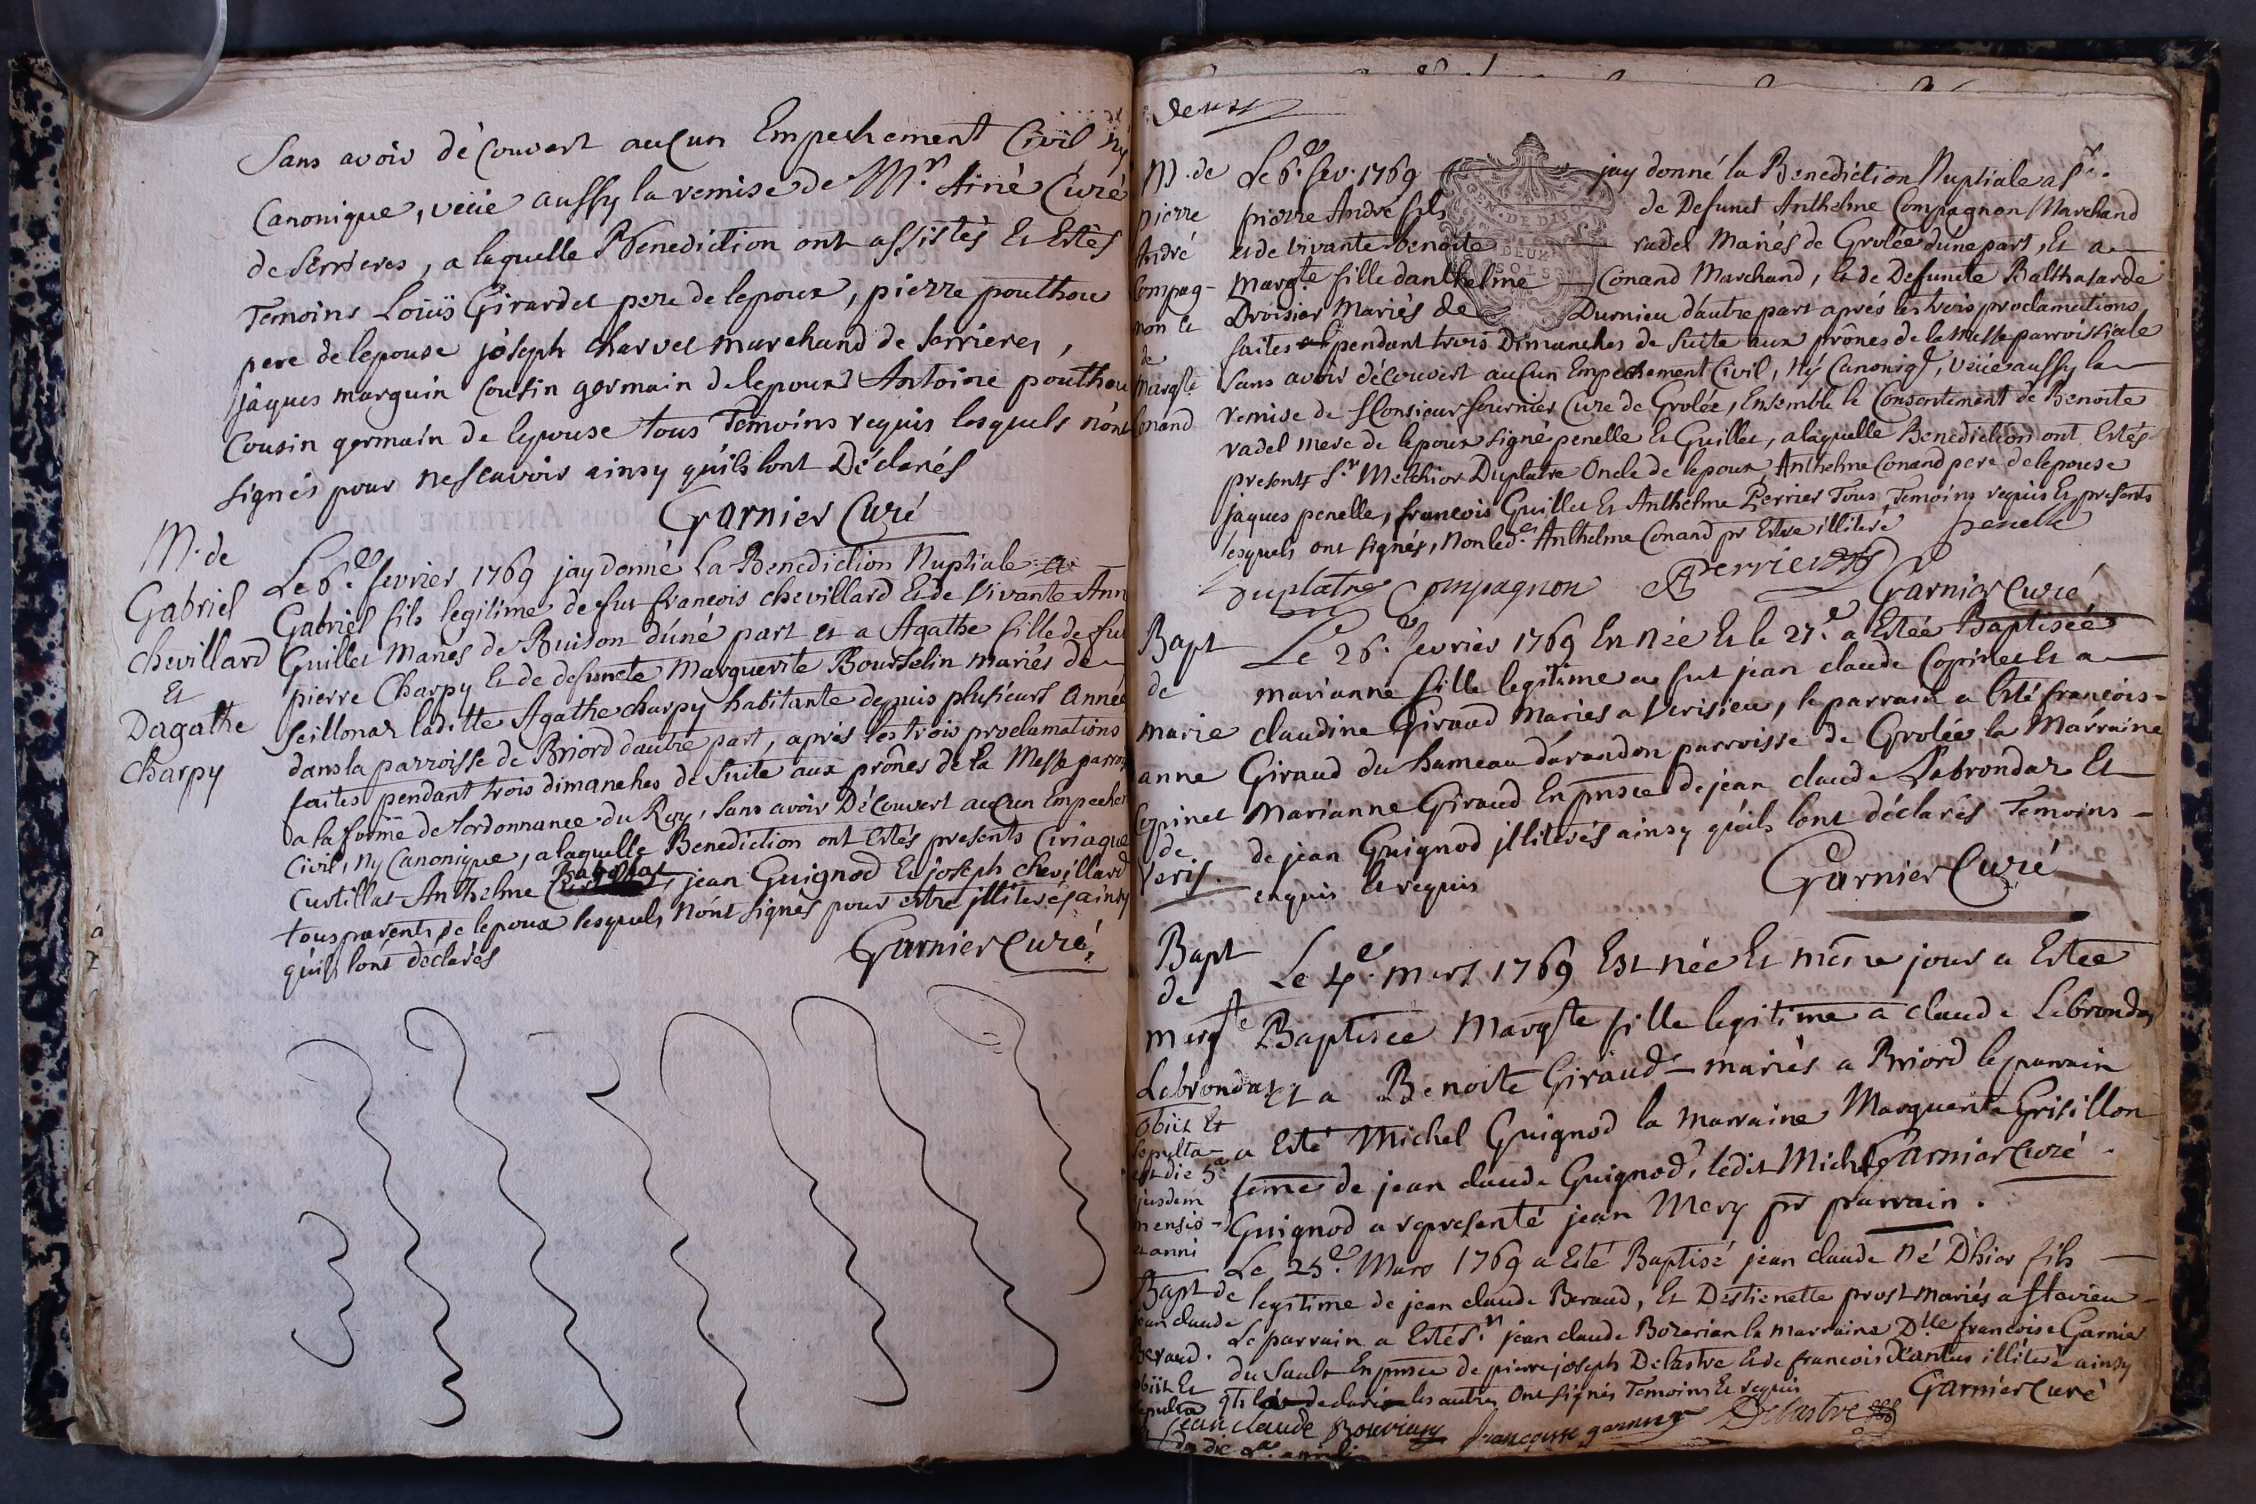 Sans avoir découvert auCun Empechement Civil ny
Canonique, veüe aussy la remise de Mr. Aimé Curé
de Serrieres, a laquelle Benediction ont assistés Et Estés
Temoins Loüis Girardet pere de lepoux, pierre pouthou
pere de lepouse joseph charvet marchand de serrieres,
jâques marguin Cousin germain de lepoux Antoine pouthou
Cousin germain de lepouse tous Temoins requis lesquels n'ont
signés pour nescavoir ainsy qu'ils lont Déclarés
Garnier Curé
M. de
Gabriel
chevillard
Et
Dagathe
Charpy
Le 6e. fevrier 1769 jay donné La Benediction Nuptiale a
Gabriel fils legitime de fut francois chevillard Et de Vivante Ann
Guillet Mariés de Buison d'une part et a Agathe fille de fut
pierre Charpy Et de defuncte Marguerite Bourselin mariés de
seillonaz laditte Agathe charpy habitante depuis plusieurs Année
dans la parroisse de Briord dautre part, aprés les trois proclamations
faites pendant trois dimanches de suite aux prônes de la Messe parrois
a la forme de lordonnance du Roy, sans avoir Découvert auCun Empechem
Civil, Ny Canonique, a laquelle Benediction ont Estés presents Ciriaque
Curtillat Anthelme jean Guignod Et joseph chevillard
tous parents de lepoux lesquels N'ont signés pour estre illiterés ainsy
qu'ils lont declarés
Garnier Curé
deux
GEN. DE DIJON
DEUX
SOLS
M. de
pierre
André
Compag-
non et
de
Margte
Conand
Le 6e. fev. 1769 jay donné la Benediction Nuptiale a Sr.
pierre André fils de Defunct Anthelme Compagnon Marchand
et de vivante Benoite radel Mariés de Grolée dune part, Et a
Margte fille danthelme Conand Marchand, Et de Defuncte Balthasarde
Droisier Mariés de Durnieu d'autre part aprés les trois proclamations
faites pendant trois Dimanches de suite aux prônes de la Messe parroissiale
sans avoir découvert auCun Empechement Civil, Ny Canoniqe, veüe aussy la
remise de Monsieur fournier Cure de Grolée, Ensemble le Consentement de Benoite
radel mere de lepoux signé penelle Et Guillet, a laquelle Benediction ont Estés
presents Sr. Melchior Duplatre Oncle de lepoux, Anthelme Conand pere de lepouse
jaques penelle, francois Guillet Et Anthelme Perrier Tous Temoins requis Et presents
lesquels ont signés, Non led. Anthelme Conand pr Estre illiteré penelle
Duplatre Compagnon A Perrier Garnier Curé
Bapt
de
marie
anne
Copinet
de
Veris.
Le 26e. fevrier 1769 En née Et le 27e. a Estée Baptisée
marianne fille legitime a fut jean claude Copinet Et a
claudine Giraud Mariés a Verisieu, le parrain a Esté francois
Giraud du hameau d'arandon parroisse de Grolée, la Marraine
Marianne Giraud En pnsce de jean claude Lebrondaz Et
de jean Guignod illiterés ainsy qu'ils lont déclarés Temoins
enquis Et requis
Garnier Curé
Bapt
de
margte
Lebrondaz
Obiit Et
sepulta
est die 5a
ejusdem
mensis
et anni
Le 4e. mars 1769 Est née Et même jour a Estée
Baptisée Margte fille legitime a claude Lebrondaz
Et a Benoite Giraud mariés a Briord le parrain
a Esté Michel Guignod la marraine Marguerite Grisillon
feme de jean claude Guignod, ledit Michel Garnier Curé
Guignod a representé jean Mery pr parrain.
Bapt de
jean claude
Beraud.
obiit Et
sepultus
Le 25e. Mars 1769 a Esté Baptisé jean claude Né D'hier fils
legitime de jean claude Beraud, Et Destienette prost mariés a flevieu
Le parrain a Esté Sr. jean claude Bozerian la marraine Dlle francoise Garnier
du Sault En pnsce de pierre joseph Delastre Et de francois illiteré ainsy
les autres Ont signés Temoins Et requis
Garnier Curé
jean claude francoise garnier Delastre